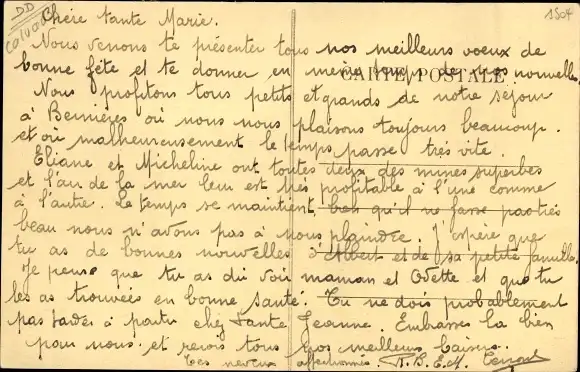 DD
Calvados
1504
CARTE POSTALE
Chère tante Marie.
Nous venons te présenter tous nos meilleurs voeux de
bonne fête et te donner en même temps de nos nouvelles.
Nous profitons tous petits et grands de notre séjour
à Bernières où nous nous plaisons toujours beaucoup.
et où malheureusement le temps passe très vite.
Eliane et Micheline ont toutes deux des mines superbes
et l'air de la mer leur est très profitable à l'une comme
à l'autre. Le temps se maintient, bien qu'il ne fasse pas très
beau nous n'avons pas à nous plaindre. J'espère que
tu as de bonnes nouvelles d'Albert et de sa petite famille.
Je pense que tu as dû voir maman et Odette et que tu
les as trouvées en bonne santé. Tu ne dois probablement
pas tarder à partir chez tante Jeanne. Embrasse la bien
pour nous et reçois tous nos meilleurs baisers.
Tes neveux affectionnés. R. B. E. M.